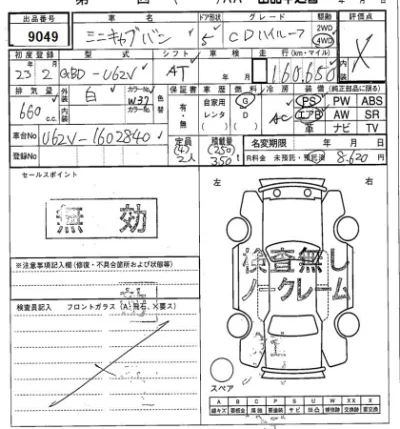 出品番号 車名 ドア形状 グレード 駆動 評価点
9049 ミニキャブバン 5 CDハイルーフ 2WD 4WD X
初度登録 型式 シフト 車検 走行(km・マイル)
23 2 GBD-U62V AT 年 月 160,650
排気量 外装 白 カラーNo W37 色替 保証書 車歴 燃料 冷房 装備 (純正部品に限る)
660 c.c. 内装 有・無 自家用 レンタ G D AC PS PW ABS
エアB AW SR
車台No U62V-1602840 車 ナビ TV
登録No 定員 2人 積載量 (250) 350 名変期限 年 月 日
R料金 未預託・預託済 8,620 円
セールスポイント 左 右
無効
検査無し
ノークレーム
※注意事項記入欄(修復・不具合箇所および状態等)
検査員記入 フロントガラス(A:飛石、×要ス)
スペア
A B C P S U W X XX